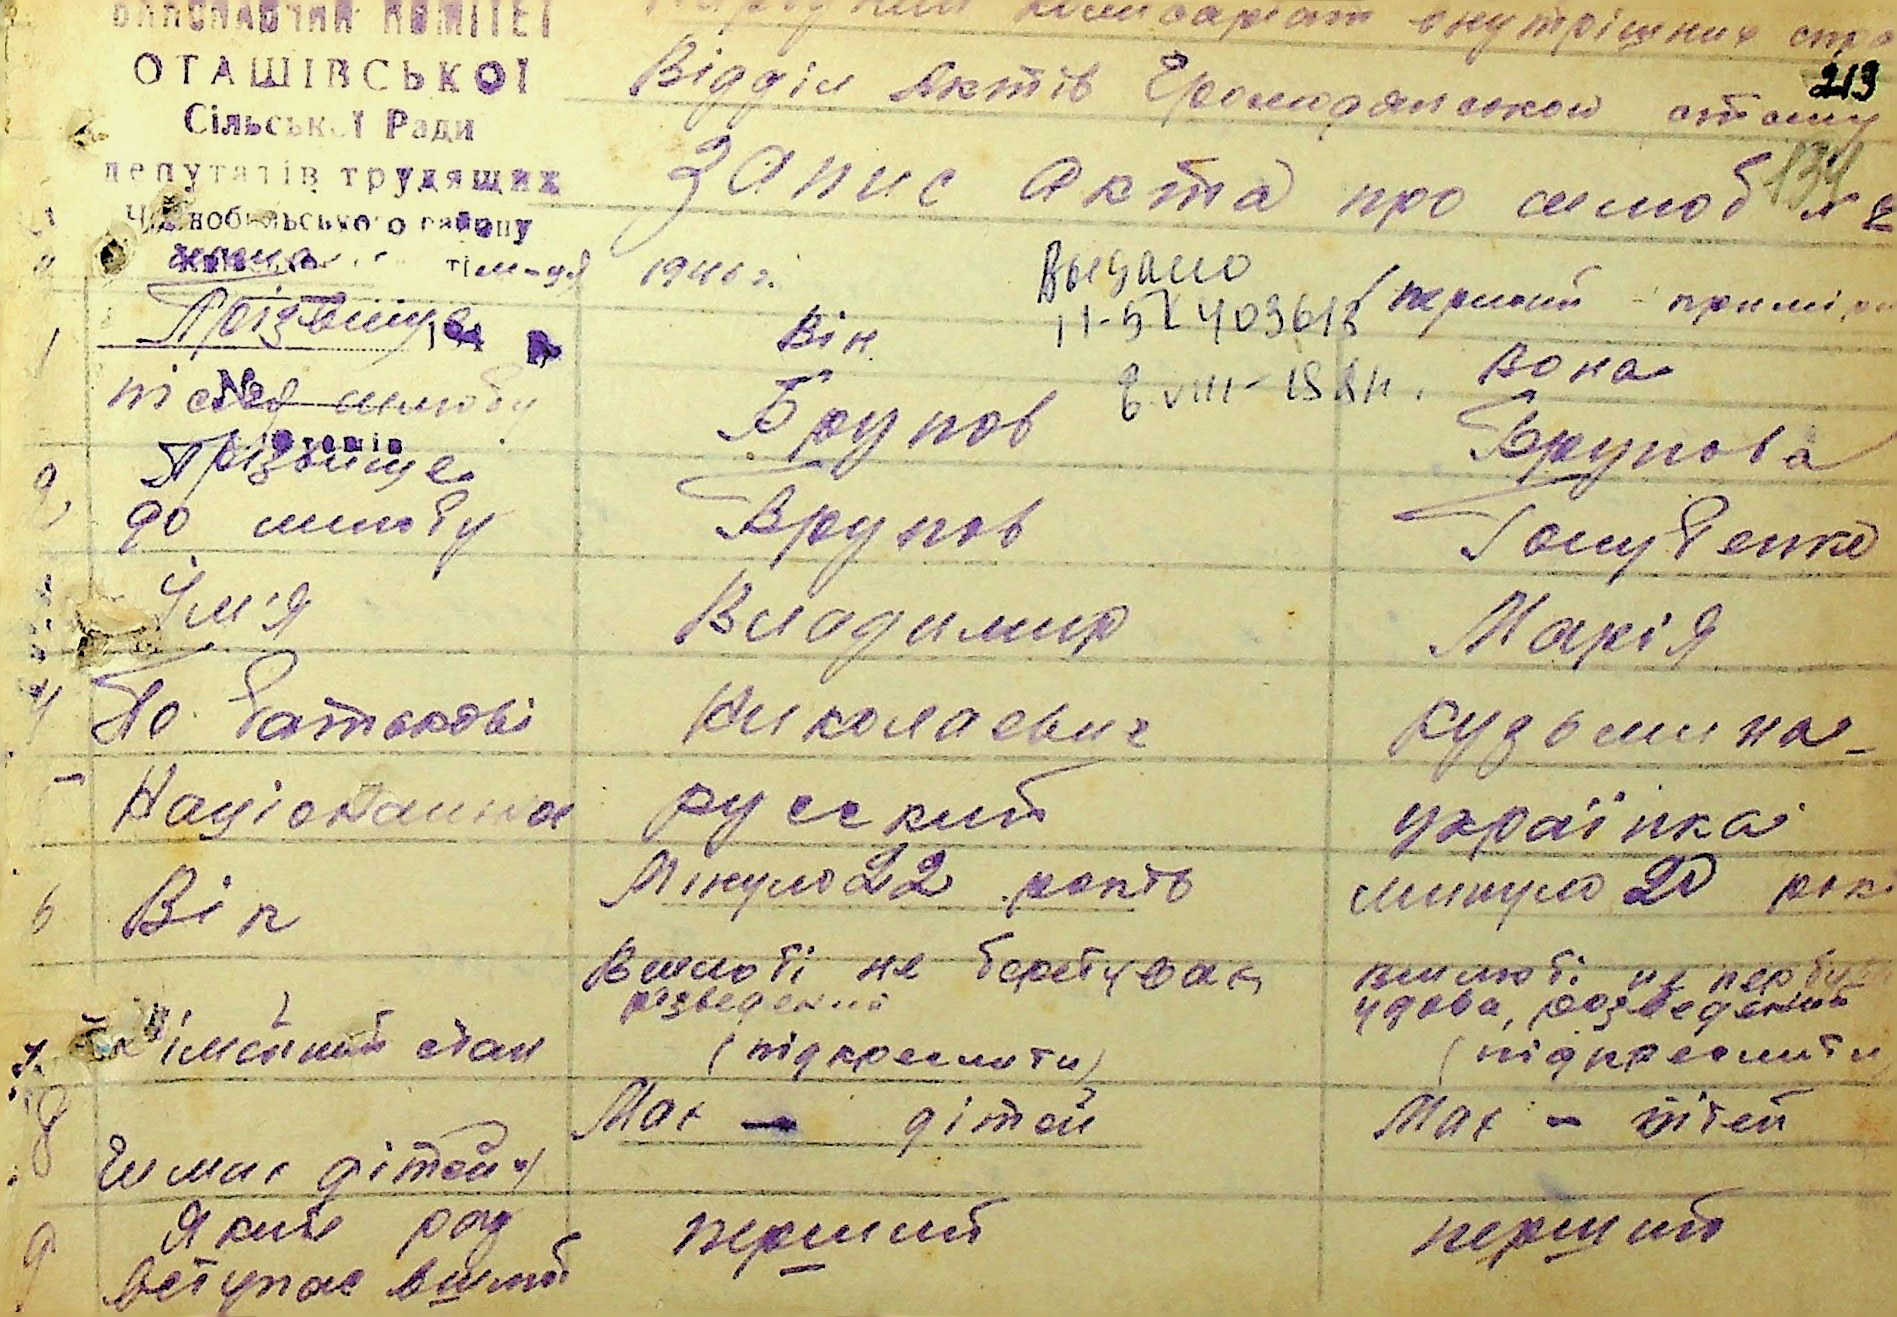 ВИКОНАВЧИЙ КОМІТЕТ
ОТАШІВСЬКОЇ
Сільської Ради
депутатів трудящих
Чорнобильського району
комісаріат внутрішних спра
Відділ Актів Громадянського стану
213
134
Запис Акта про шлюб №
1940 г.
Выдано
11-52 403613
8.VIII-
перший примірн
1 Прізвище
після шлюбу
Він
Вона
Брупов
Врупова
2 Прізвище
до шлюбу
Врупов
Голубенко
Ім'я
Владимир
Марія
4 По батькові
Николаевич
Кузьмина
5 Національна
русский
українка
6 Вік
Минуло 22 років
минуло 20 рок
7 Сімейний стан
В шлюбі не перебував
розведений
(підкреслити)
в шлюбі не перебув
удова, розведений
(підкреслити)
8 Чи має дітей
Має — дітей
Має - дітей
9 Який раз
вступає в шлюб
перший
перший